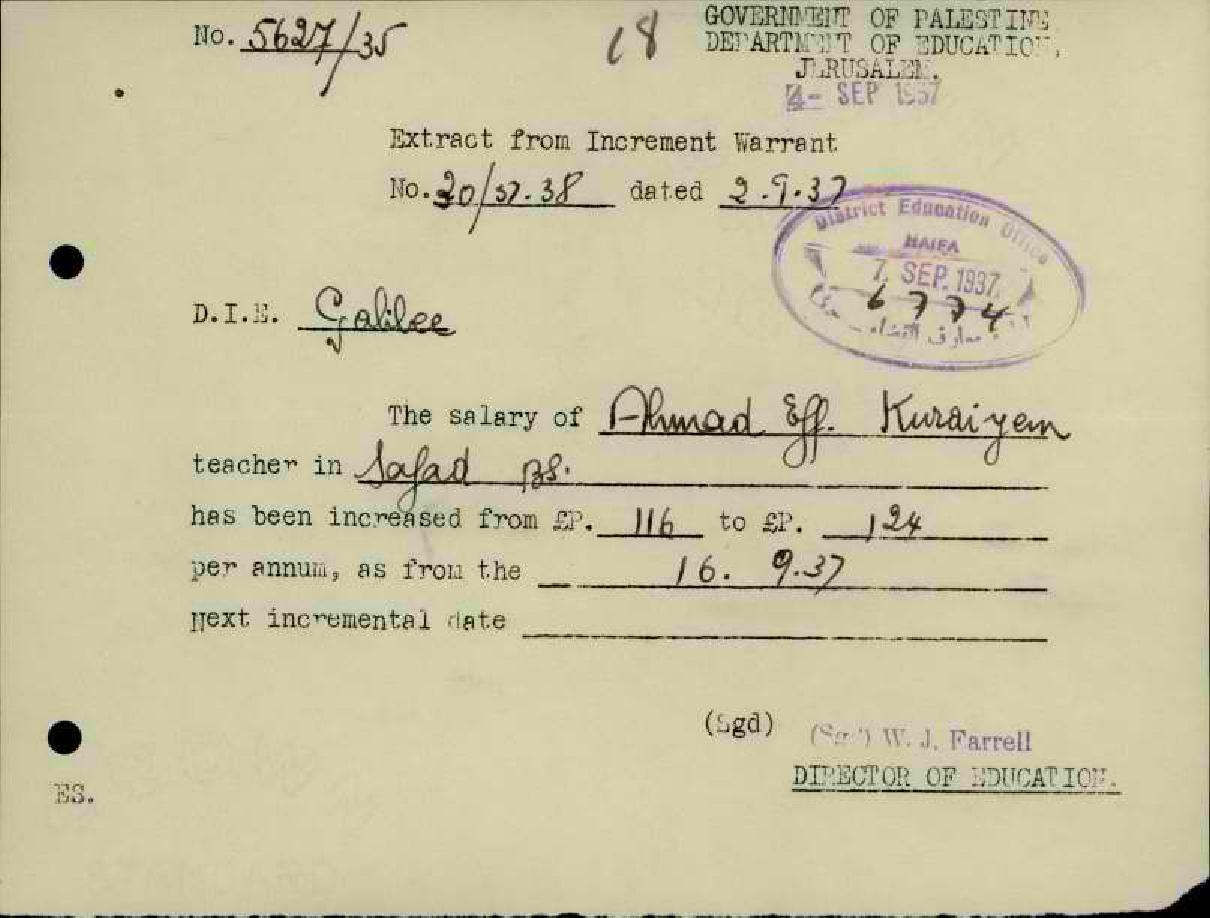 No. 5627/35
18
GOVERNMENT OF PALESTINE
DEPARTMENT OF EDUCATION,
JERUSALEM.
4- SEP 1937
Extract from Increment Warrant
No. 30/37.38 dated 2.9.37
District Education Office
HAIFA
7. SEP. 1937
6774
معارف
D.I.E. Galilee
The salary of Ahmad Eff. Kuraiyem
teacher in Safad BS.
has been increased from £P. 116 to £P. 124
per annum, as from the 16. 9.37
Next incremental date
(Sgd) (Sgd) W. J. Farrell
DIRECTOR OF EDUCATION.
ES.